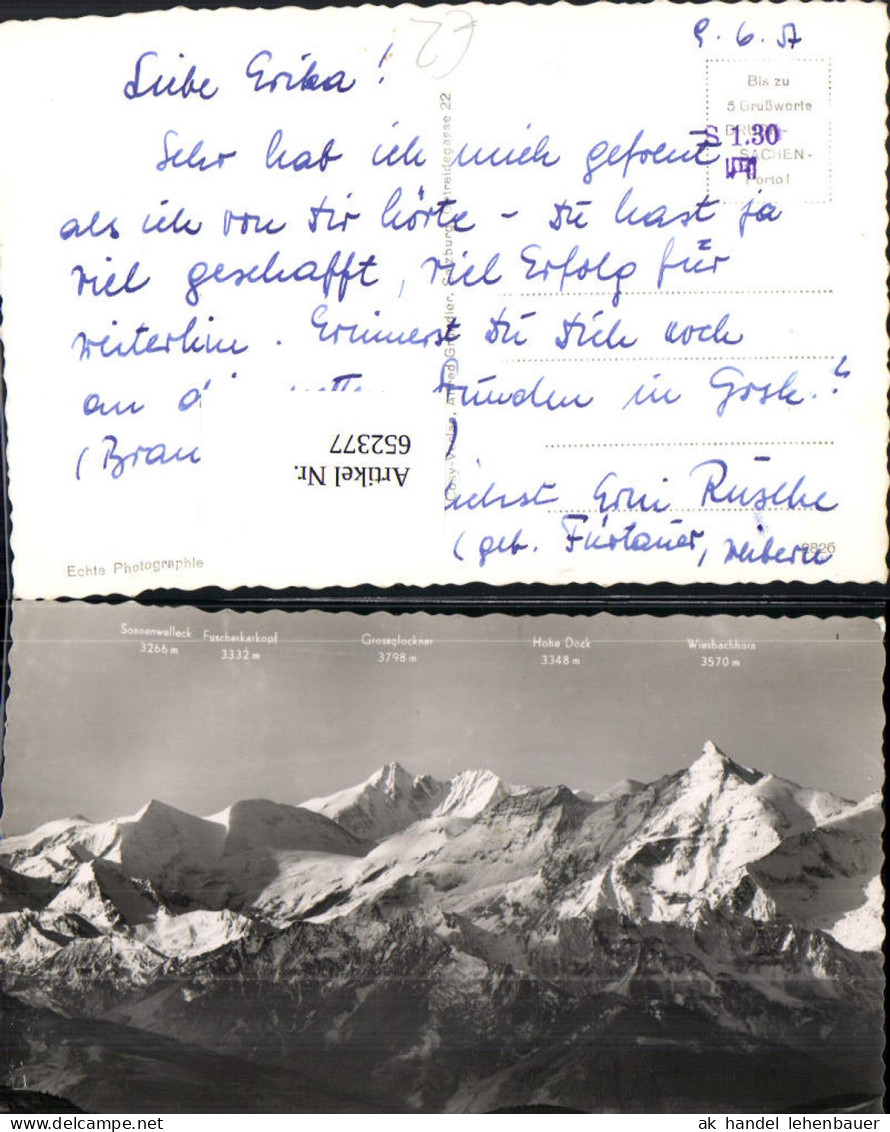 9. 6. 57
Liebe Erika!
Bis zu
5 Grußworte
DRUCK-
SACHEN-
Porto!
S 1.30
Sehr hab ich mich gefreut
als ich von Dir hörte - Du hast ja
viel geschafft, viel Erfolg für
weiterhin. Erinnerst Du Dich noch
an Stunden in Gosk.?
(Brau )
Erni Rüsche
(geb. Fürtauer,
652377
Artikel Nr.
Cosy-Verlag, Alfred Gründler, Salzburg, Getreidegasse 22
Echte Photographie
Sonnenwelleck
3266 m
Fuscherkarkopf
3332 m
Grossglockner
3798 m
Hohe Dock
3348 m
Wiesbachhorn
3570 m
ak handel lehenbauer